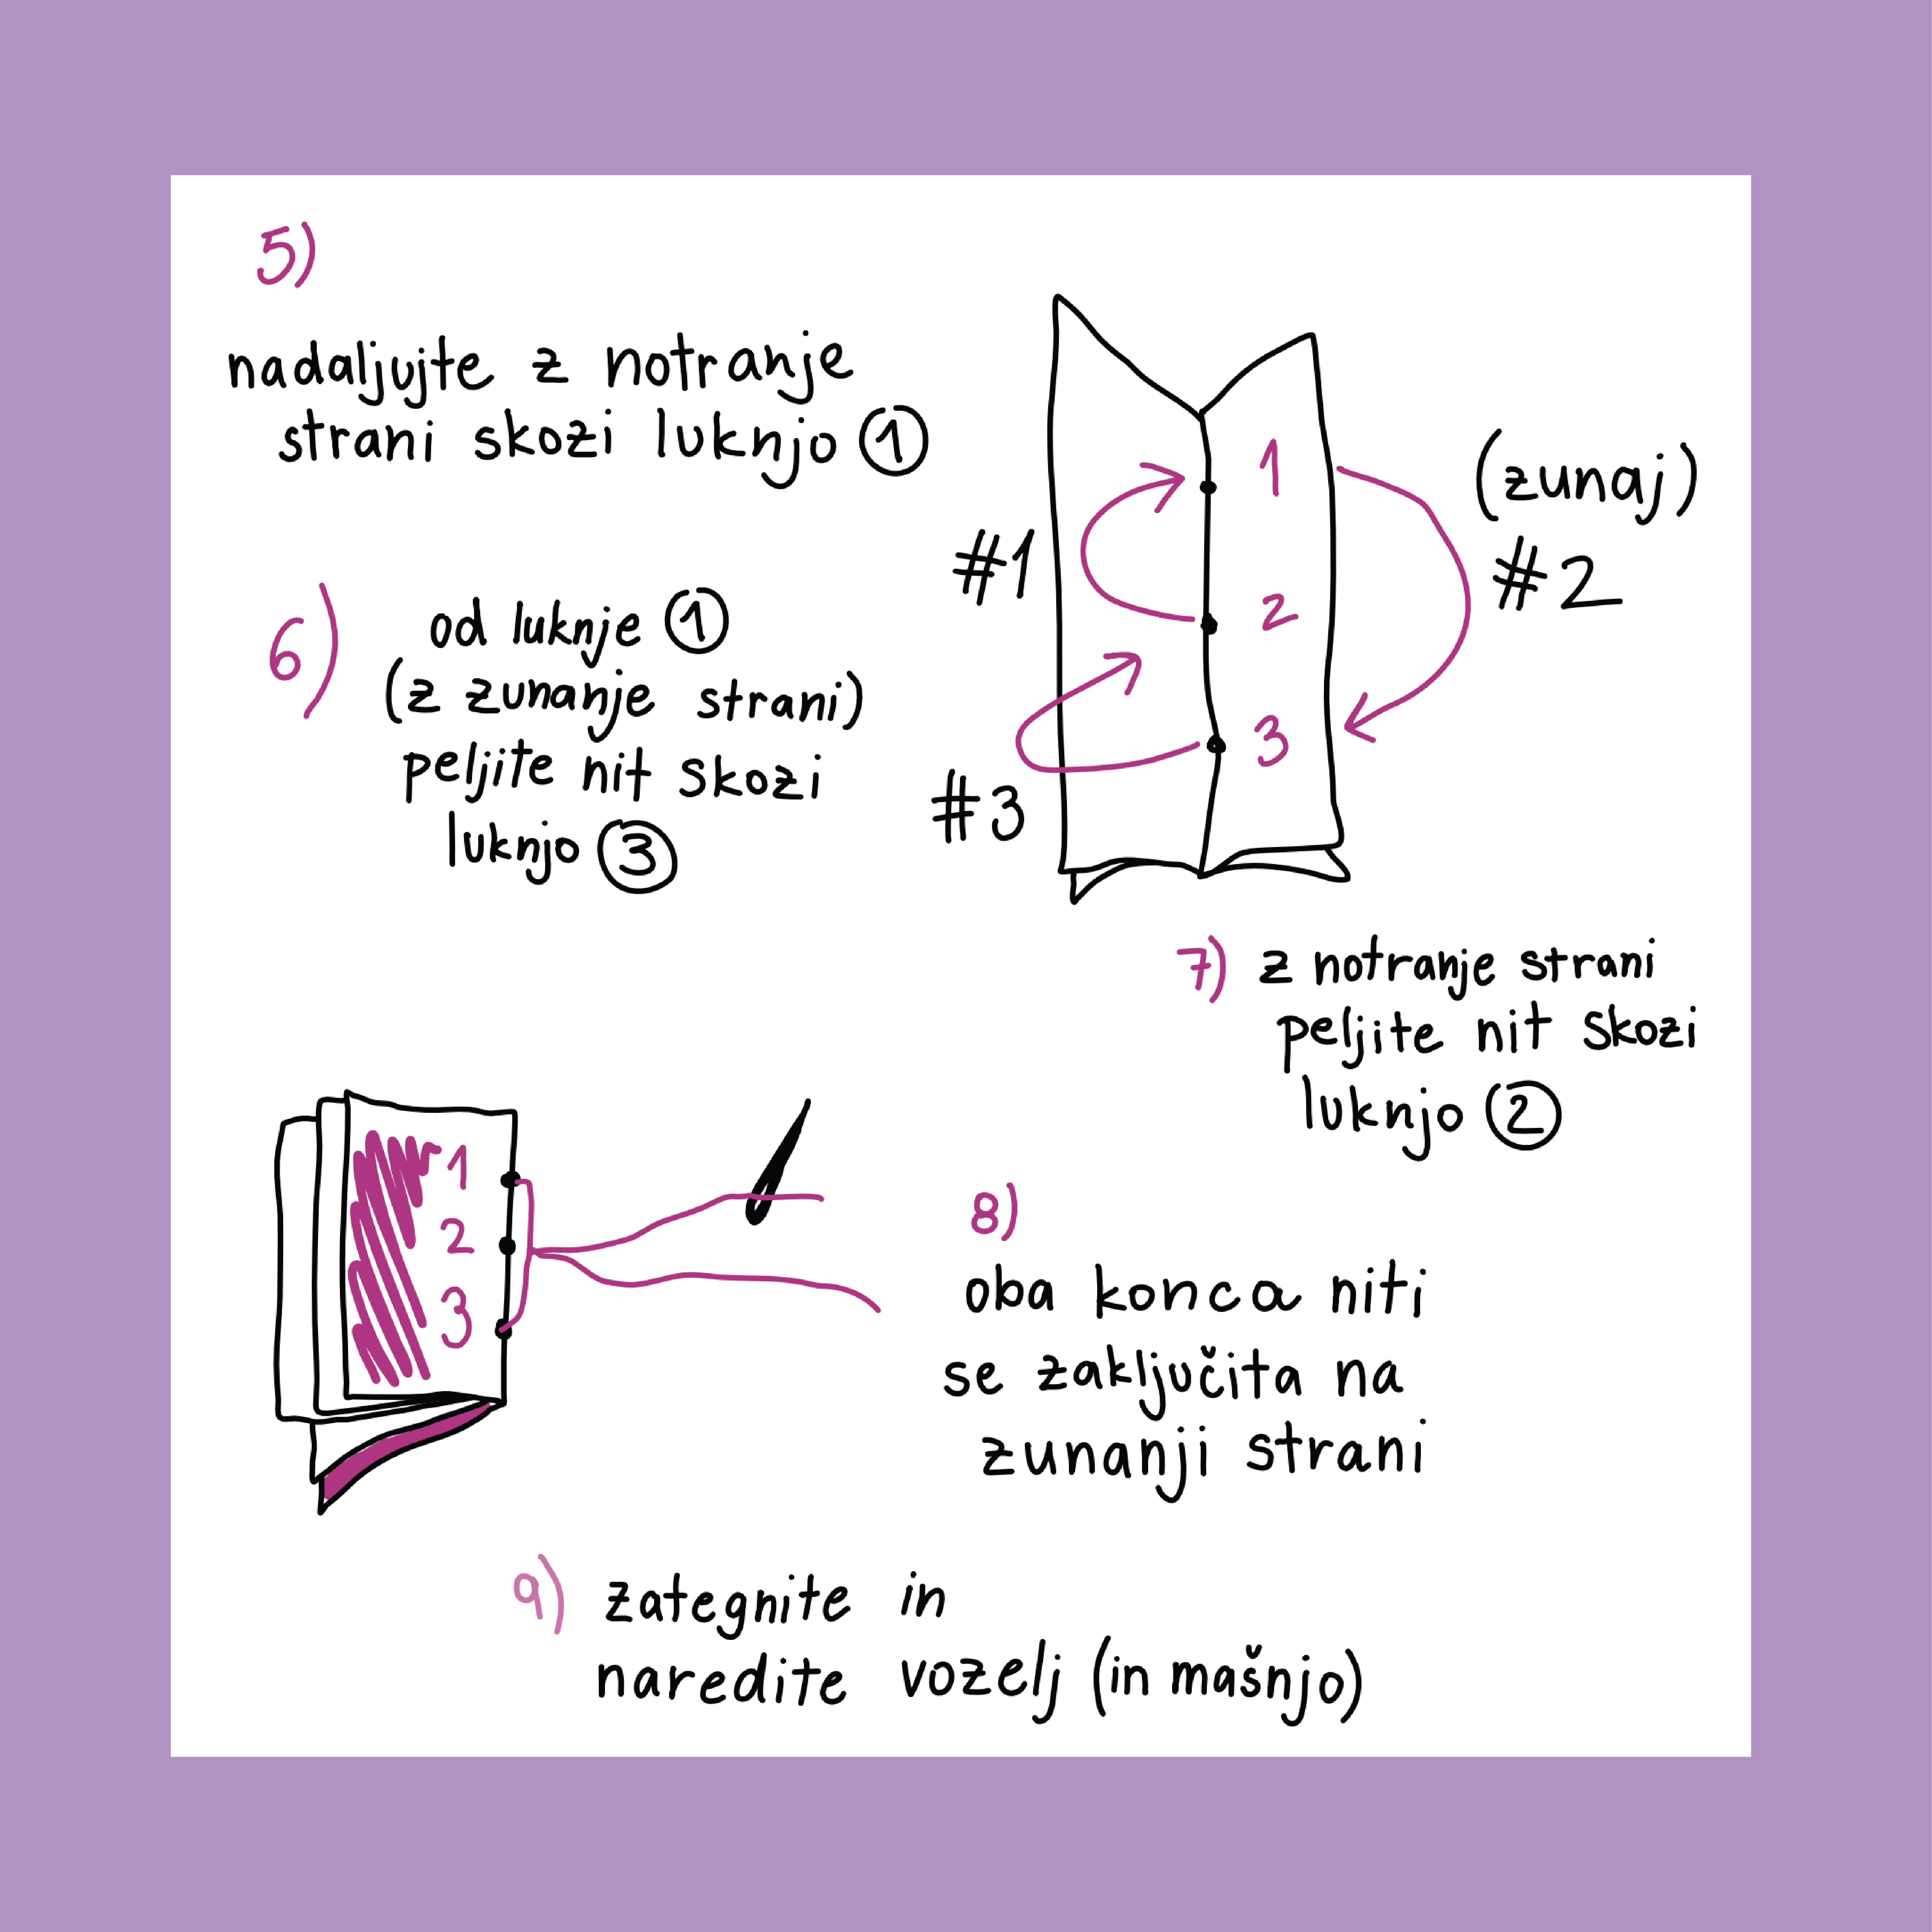 5)
nadaljujte z notranje
strani skozi luknjo 1
6)
od luknje 1
(z zunanje strani)
peljite nit skozi
luknjo 3
#1
1
2
3
(zunaj)
#2
#3
7) z notranje strani
peljite nit skozi
luknjo 2
1
2
3
8)
oba konca niti
se zaključita na
zunanji strani
9) zategnite in
naredite vozelj (in mašnjo)